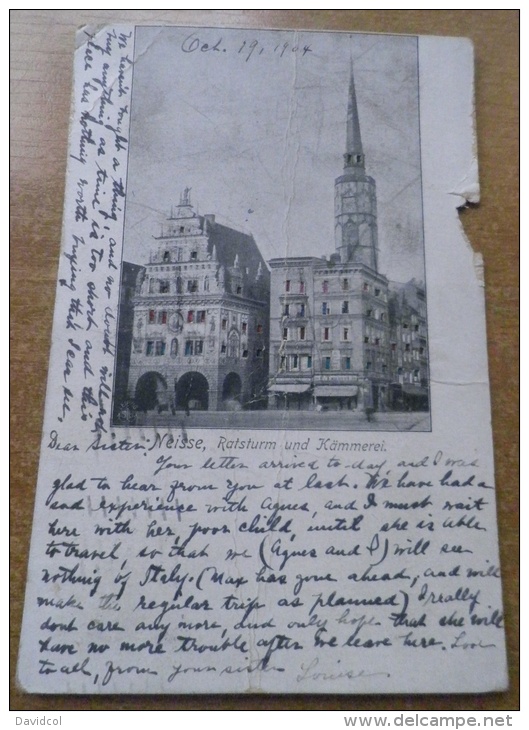 Oct. 19, 1904
Neisse, Ratsturm und Kämmerei.
Dear Sister:
Your letter arrived to-day, and I was
glad to hear from you at last. We have had a
sad experience with Agnes, and I must wait
here with her, poor child, until she is able
to travel, so that we (Agnes and I) will see
nothing of Italy. (Max has gone ahead, and will
make the regular trip as planned) I really
dont care any more, and only hope that she will
have no more trouble after we leave here. Love
to all, from your sister
Louise.
We haven't bought a thing, and no doubt will
any thing as time is too short and this
place has nothing worth buying that I can see.
Davidcol
www.delcampe.net